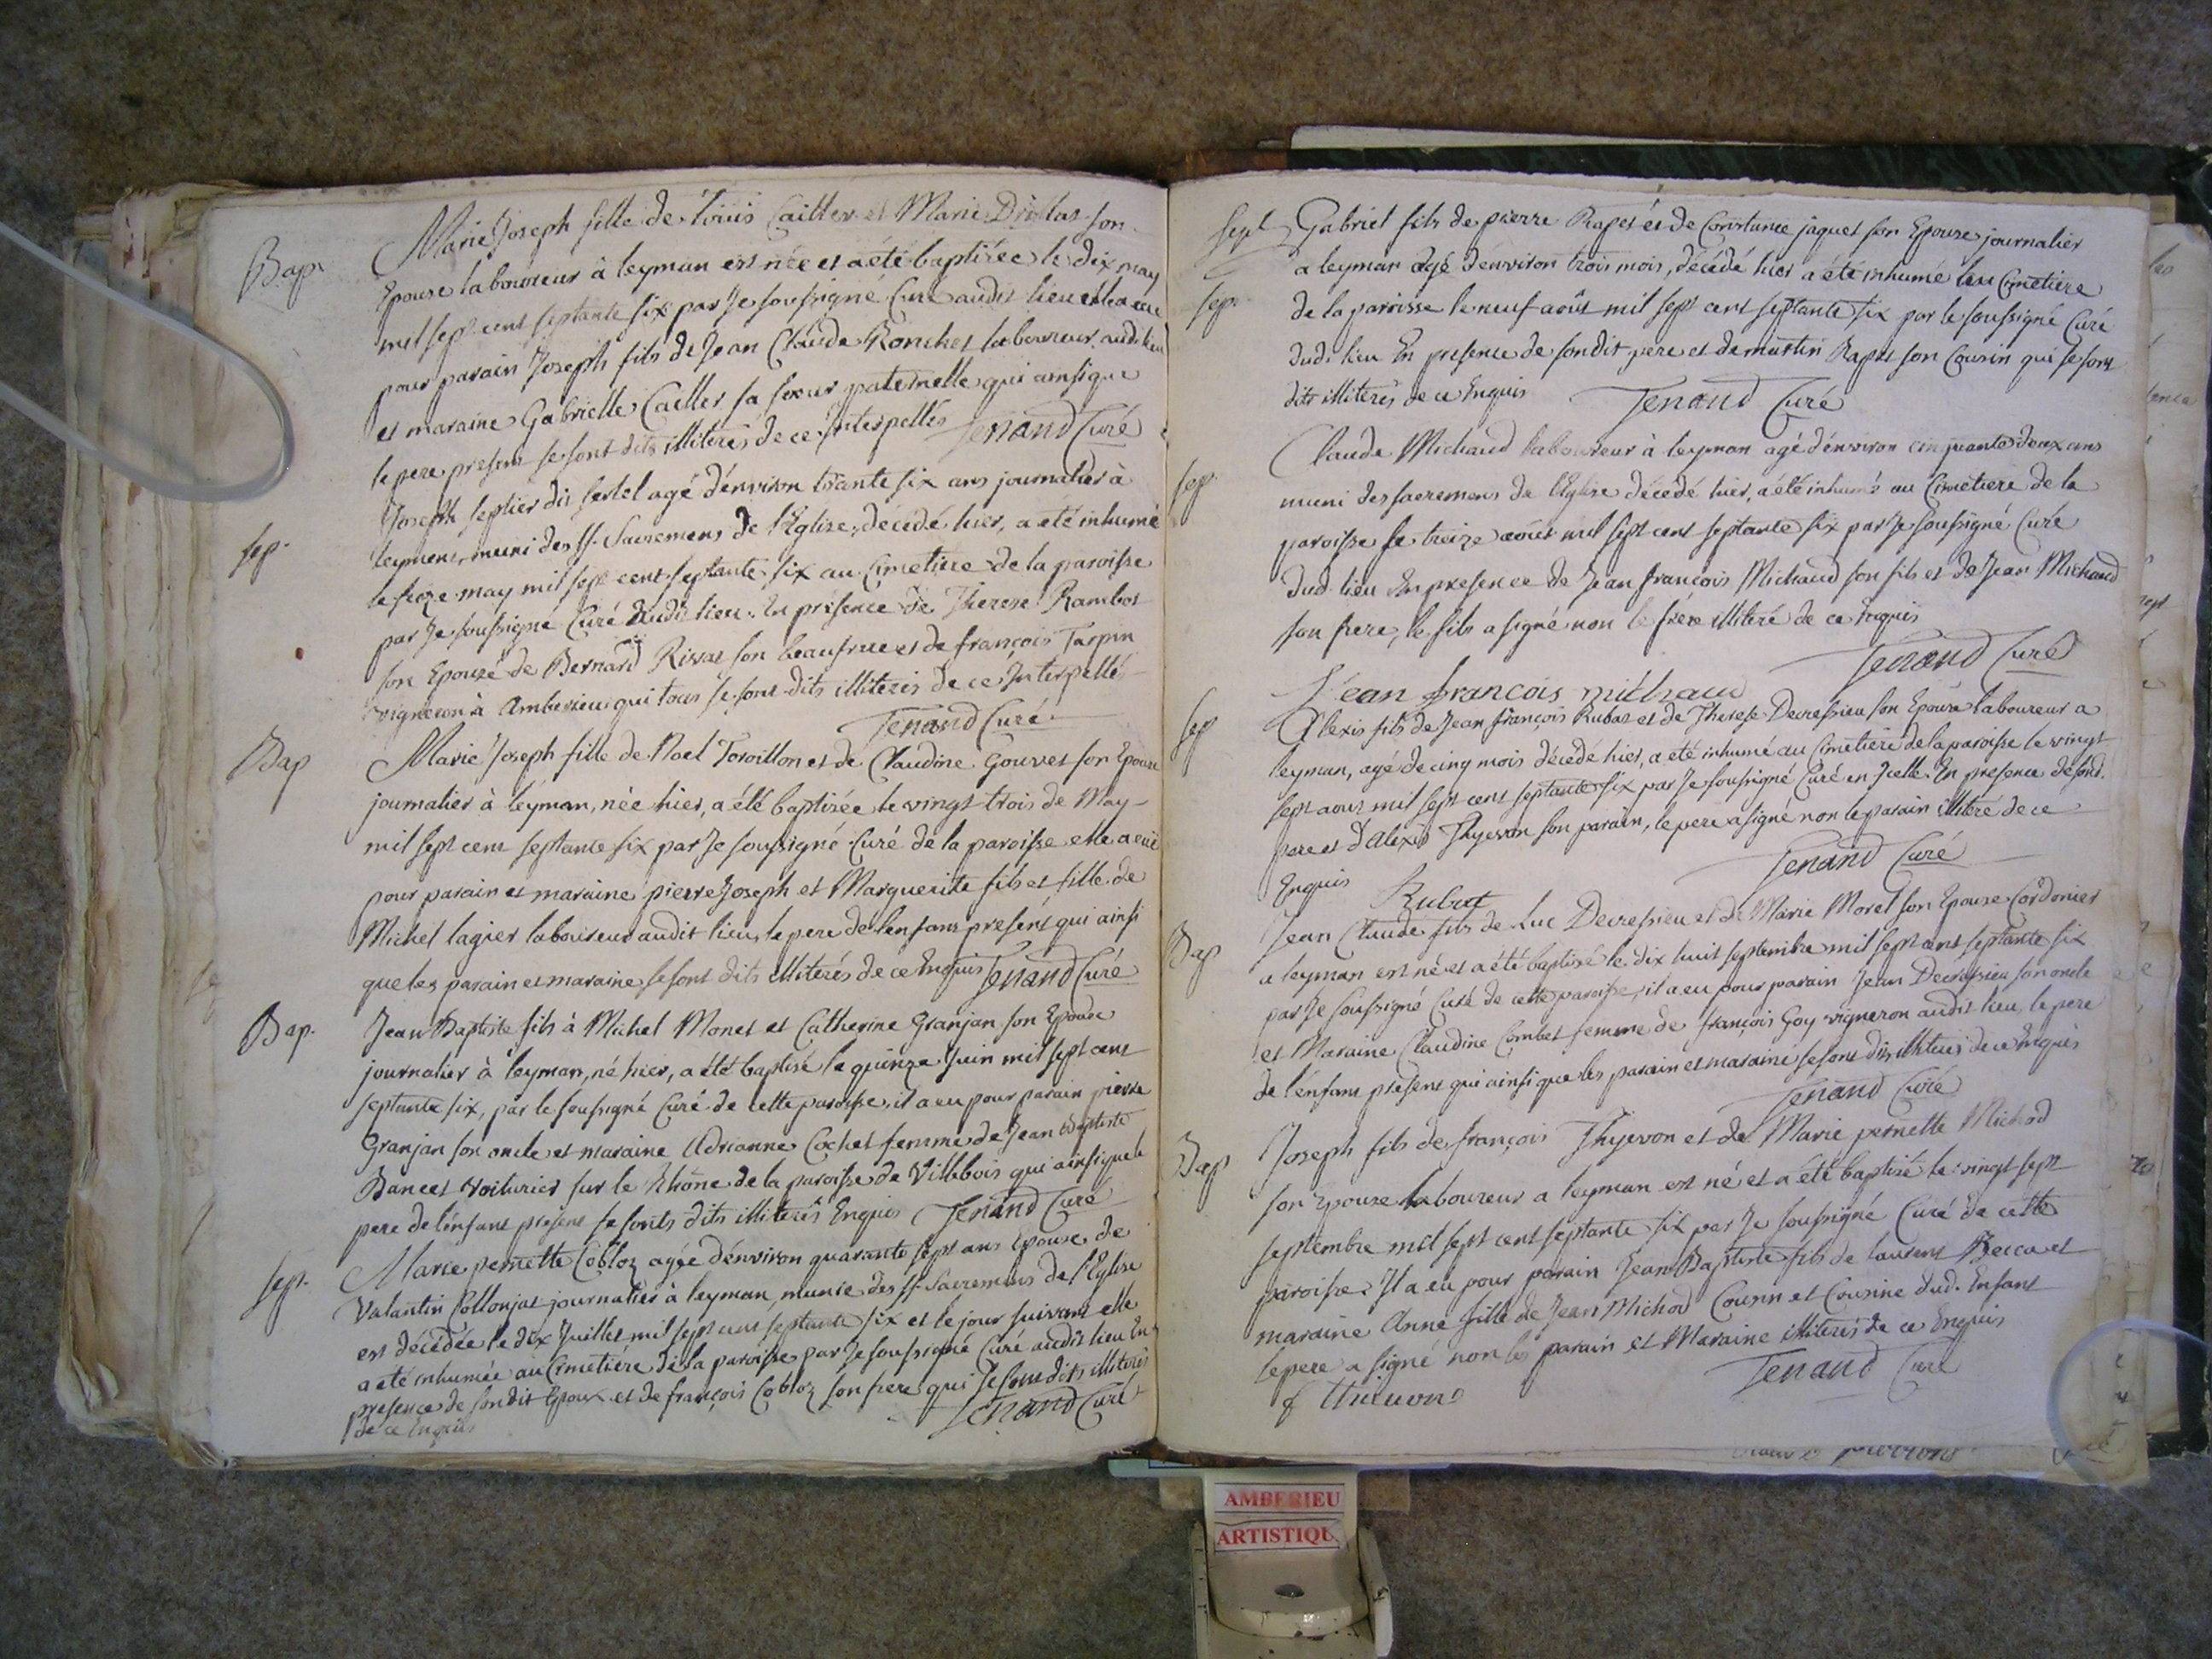 Bap.
Marie Joseph fille de Louis Cailler et Marie Drollas son
Epouse laboureur à leyman est née et a été baptisée le dix may
mil sept cent septante six par Je soussigné Curé audit lieu elle a eu
pour parain Joseph fils de Jean Claude Ronchet laboureur aud. lieu
et maraine Gabrielle Cailler sa soeur paternelle qui ainsi que
le pere present se sont dits illiterés de ce Interpellés Tenand Curé
sep.
Joseph septier dit sertel agé d'environ trante six ans journalier à
leyment, muni des SS. Sacremens de l'Eglise, décédé hier, a été inhumé
le seize may mil sept cent septante six au Cimetiere de la paroisse
par Je soussigné Curé dudit lieu. En présence de Therese Rambos
son Epouse de Bernard Rivat son beaufrere et de françois Tarpin
vigneron à Amberieu qui tous se sont dits illiterés de ce Interpellés
Tenand Curé
Bap
Marie Joseph fille de Noel Toroillon et de Claudine Gouvet son Epouse
journalier à leyman, née hier, a été baptisée le vingt trois de May
mil sept cent septante six par Je soussigné Curé de la paroisse elle a eu
pour parain et maraine pierre Joseph et Marguerite fils et fille de
Michel lagier laboureur audit lieu, le pere de l'enfant present qui ainsi
que les parain et maraine se sont dits illiterés de ce Enquis Tenand Curé
Bap.
Jean Baptiste fils à Michel Monet et Catherine Granjan son Epouse
journalier à leyman, né hier, a été baptisé le quinze Juin mil sept cent
septante six, par le soussigné Curé de cette paroisse, il a eu pour parain pierre
Granjan son oncle et maraine Adrianne Cochet femme de Jean Baptiste
Bancet voiturier sur le Rhône de la paroisse de Villebois qui ainsi que le
pere de l'enfant present se sonts dits illiterés Enquis Tenand Curé
sep.
Marie pernette Cobloz agée d'environ quarante sept ans Epouse de
Valantin Collonjat journalier à leyman, munie des SS. Sacremens de l'Eglise
est décédée le dix Juillet mil sept cent septante six et le jour suivant elle
a été inhumée au Cimetiére de la paroisse par Je soussigné Curé audit lieu En
presence de sondit Epoux et de françois Cobloz son frere qui se sont dits illiterés
de ce Enquis Tenand Curé
sept
sep.
Gabriel fils de pierre Rapet et de Constance jaquet son Epouse journalier
a leyman agé d'environ trois mois, décédé hier a été inhumé au Cimetiere
de la paroisse le neuf août mil sept cent septante six par le soussigné Curé
dud. lieu En presence de sondit pere et de martin Rapet son Cousin qui se sont
dits illiterés de ce Enquis Tenand Curé
sep.
Claude Michaud laboureur à leyman agé d'environ cinquante deux ans
muni des sacremens de l'Eglise décédé hier, a été inhumé au Cimetiere de la
paroisse le treize août mil sept cent septante six par Je soussigné Curé
dud. lieu En presence de Jean françois Michaud son fils et de Jean Michaud
son frere, le fils a signé non le frere illiteré de ce Enquis
Tenand Curé
Jean françois michaud
sep
Alexis fils de Jean françois Rubat et de Therese Decressieu son Epouse laboureur a
leyman, agé de cinq mois décédé hier, a été inhumé au Cimetiére de la paroisse le vingt
sept aout mil sept cent septante six par Je soussigné Curé en Icelle. En presence de sond.
pere et d'Alexis Thyevon son parain, le pere a signé non le parain illiteré de ce
Enquis Rubat Tenand Curé
Bap
Jean Claude fils de Luc Decressieu et de Marie Morel son Epouse Cordonier
a leyman est né et a été baptisé le dix huit septembre mil sept cent septante six
par Je soussigné Curé de cette paroisse, il a eu pour parain Jean Decressieu son oncle
et Maraine Claudine Combet femme de françois Goy vigneron audit lieu, le pere
de l'enfant present qui ainsi que les parain et maraine se sont dits illiterés de ce Enquis
Tenand Curé
Bap
Joseph fils de françois Thyevon et de Marie pernette Michod
son Epouse laboureur a leyman est né et a été baptisé le vingt sept
septembre mil sept cent septante six par Je soussigné Curé de cette
paroisse. Il a eu pour parain Jean Baptiste fils de laurent Becca et
maraine Anne fille de Jean Michod Cousin et Cousine dud. Enfant
le pere a signé non les parain et Maraine illiterés de ce Enquis
Tenand Curé
f thieuon
AMBERIEU
ARTISTIQU